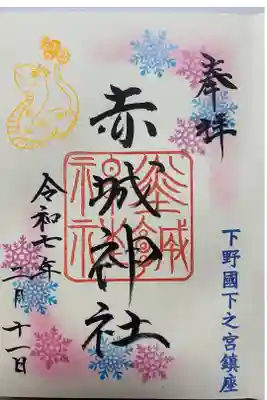 奉拝
下野國下之宮鎮座
赤城神社
令和七年
二月十一日